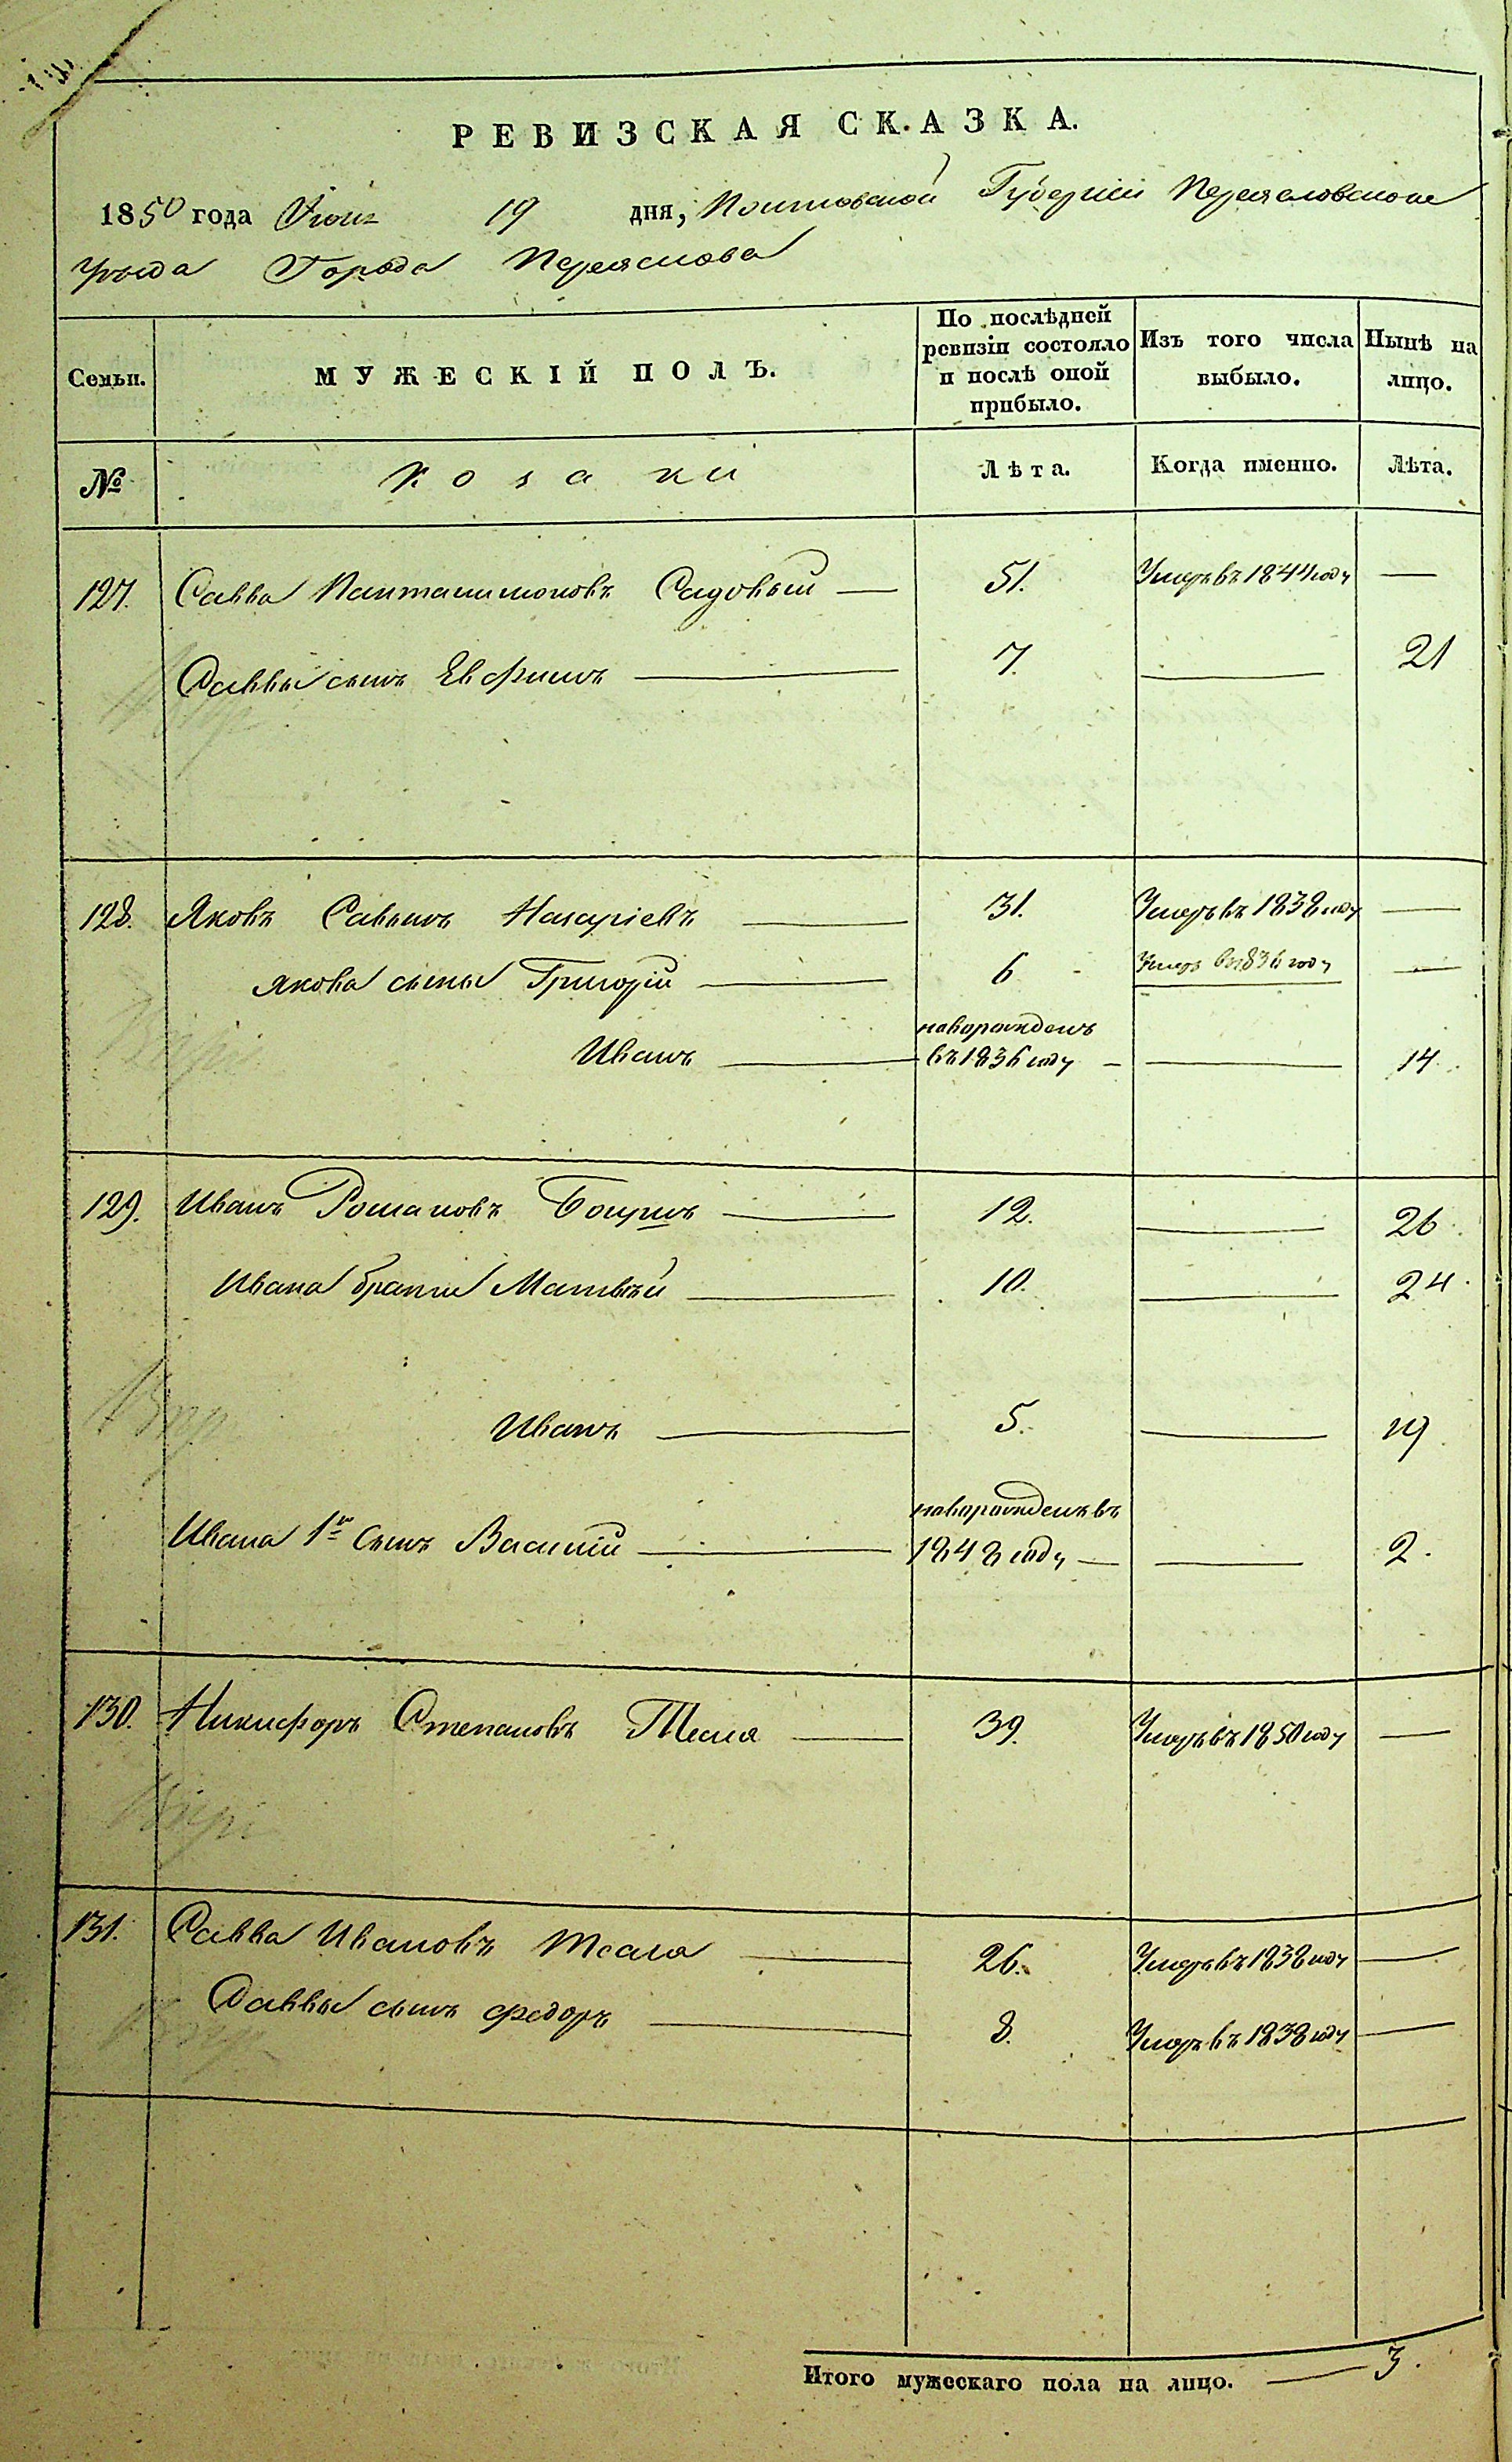 РЕВИЗСКАЯ СКАЗКА.
1850 года Іюня 19 дня, Полтавской Губерніи Переясловскаго
уезда Города Переяслова
Семьи.
МУЖЕСКІЙ ПОЛЪ.
По послѣдней ревизіи состояло и послѣ оной прибыло.
Изъ того числа выбыло.
Нынѣ на лицо.
№ Козаки Лѣта. Когда именно. Лѣта.
127. Савва Пантелимоновъ Садовый — 51. Умеръ въ 1844 году —
Саввы сынъ Евфимъ — 7. — 21
128. Яковъ Савинъ Назаріевъ — 31. Умеръ въ 1838 году —
Якова сыны Григорій — 6 Умеръ въ 1836 году —
Иванъ — новорожденъ въ 1836 году — — 14.
129. Иванъ Романовъ — 12. — 26.
Ивана братья Матвѣй — 10. — 24.
Иванъ — 5. — 19
Ивана 1го сынъ Василій — новорожденъ въ 1848 году — — 2.
130. Никифоръ Степановъ — 39. Умеръ въ 1850 году —
131. Савва Ивановъ — 26. Умеръ въ 1838 году —
Саввы сынъ Федоръ — 8. Умеръ въ 1838 году —
Итого мужескаго пола на лицо. — 3.